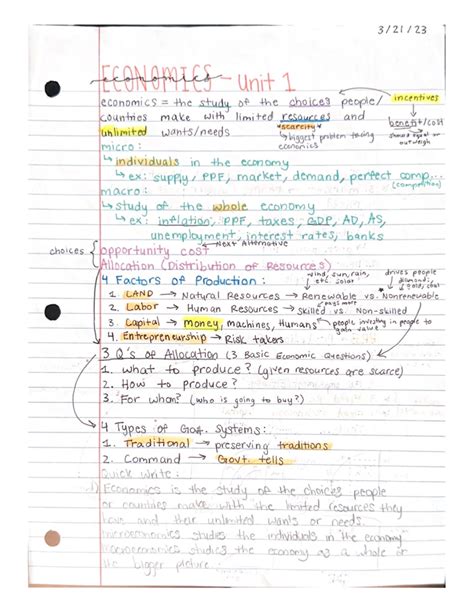 3/21/23
ECONOMICS - Unit 1
economics
economics = the study of the choices people/
countries make with limited resources and
unlimited wants/needs
incentives
benefit/cost
should equal or
outweigh
scarcity
↳ biggest problem facing
economics
micro:
↳ individuals in the economy
↳ ex: supply, PPF, market, demand, perfect comp...
(competition)
macro:
↳ study of the whole economy
↳ ex: inflation, PPF, taxes, GDP, AD, AS,
unemployment, interest rates, banks
choices
opportunity cost
Next Alternative
Allocation (Distribution of Resources)
4 Factors of Production:
wind, sun, rain,
etc. solar
drives people
gold, coal
1. LAND → Natural Resources → Renewable vs. Nonrenewable
2. Labor → Human Resources → skilled vs. Non-skilled
pays more
3. Capital → money, machines, Humans
people investing in people to
gain value
4. Entrepreneurship → Risk takers
3 Q's of Allocation (3 Basic Economic Questions)
1. What to produce? (given resources are scarce)
2. How to produce?
3. For whom? (who is going to buy?)
4 Types of Gov. Systems:
1. Traditional → preserving traditions
2. Command → Govt. tells
Quick Write:
Economics is the study of the choices people
or countries make with the limited resources they
have and their unlimited wants or needs.
microeconomics studies the individuals in the economy
macroeconomics studies the economy as a whole or
the bigger picture.